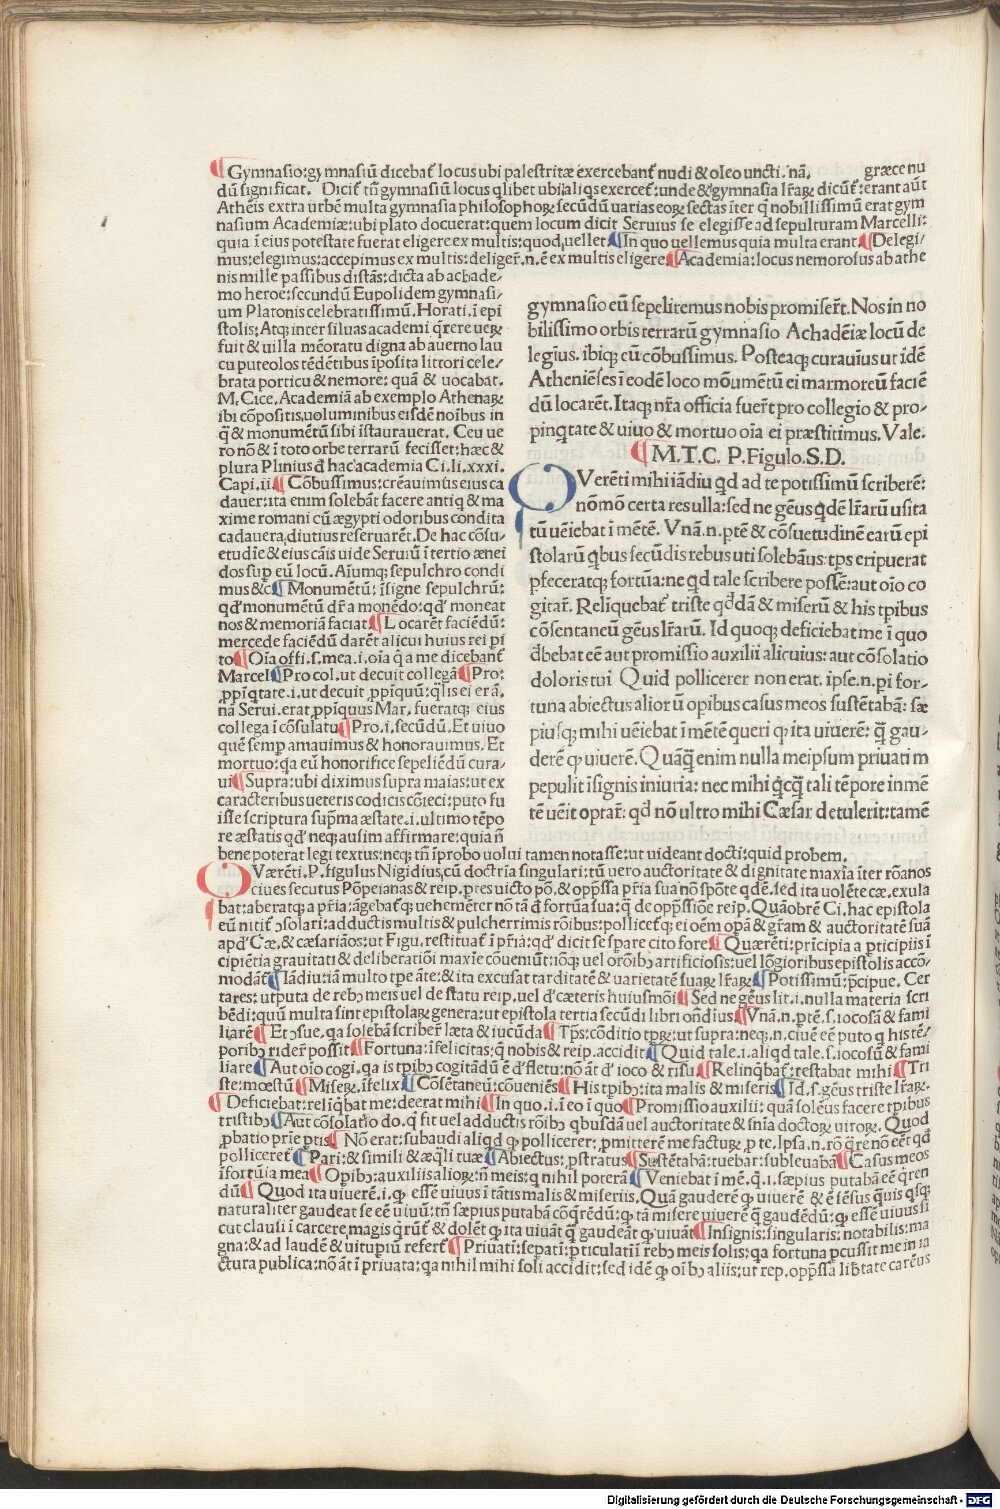 ¶Gymnasio:gymnasiū dicebat᷑ locus ubi palestritæ exercebant᷑ nudi & oleo uncti. nā. græce nu
dū significat. Dicit᷑ tñ gymnasiū locus q̄libet ubi aliq̄s exercet᷑:unde & gymnasia lr̄aꝝ dicūt᷑:erant aūt
Athēis extra urbē multa gymnasia philosophoꝝ secūdū uarias eoꝝ sectas īter q̄ nobillissimū erat gym
nasium Academiæ:ubi plato docuerat:quem locum dicit Seruius se elegisse ad sepulturam Marcelli:
quia ī eius potestate fuerat eligere ex multis:quod uellet ¶In quo uellemus quia multa erant ¶Delegi/
mus:elegimus:accepimus ex multis:deliger̄.n.ē ex multis eligere ¶Academia:locus nemorosus ab athe
nis mille passibus distās:dicta ab achade/
mo heroe:secundū Eupolidem gymnasi/
um Platonis celebratissimū. Horati.ī epi
stolis:Atq; inter siluas academi q̄rere ueꝝ
fuit & uilla mēoratu digna ab auerno lau
cu puteolos tēdētibus īposita littori cele/
brata porticu & nemore: quā & uocabat.
M.Cice.Academiā ab exemplo Athenaꝝ
ibi cōpositis uoluminibus eisdē noībus in
q̄ & monumētū sibi īstaurauerat. Ceu ue
ro nō & ī toto orbe terrarū fecisset:hæc &
plura Plinius đ hac academia Ci.li.xxxi.
Capi.ii ¶Cōbussimus:creauimus eius ca
dauer:ita enim solebāt facere antiq̄ & ma
xime romani cū ægypti odoribus condita
cadauera diutius reseruarēt.De hac cōsu/
etudīe & eius cāis uide Seruiū ī tertio ænei
dos suꝑ eū locū. Aīumq; sepulchro condi
mus &c ¶Monumētū: īsigne sepulchrū:
qd' monumētū dr̄ a monēdo:qd' moneat
nos & memoriā faciat ¶Locarēt faciēdū:
mercede faciēdū darēt alicui huius rei pi
to ¶Oīa offi.s.mea.i.oīa q̄ a me dicebant᷑
Marcel ¶Pro col.ut decuit collegā ¶Pro:
ꝓpīq̄tate.i.ut decuit ꝓpīquū:q̄lis ei erā.
nā Serui.erat ꝓpīquus Mar. fueratq; eius
collega ī cōsulatu ¶Pro.i.secūdū. Et uiuo
quē semꝑ amauimus & honorauimus. Et
mortuo:q̄a eū honorifice sepeliēdū cura/
ui ¶Supra:ubi diximus supra maias:ut ex
caracteribus ueteris codicis cōieci:puto fu
isse scriptura supm̄a æstate.i.ultimo tēpo
re æstatis qd' neq; ausim affirmare:quia ñ
bene poterat legi textus:neq; tñ īprobo uolui tamen notasse:ut uideant docti:quid probem.
gymnasio eū sepeliremus nobis promiser̄t. Nos in no
bilissimo orbis terrarū gymnasio Achadēiæ locū de
legīus. ibiq; eū cōbussimus. Posteaq; curauīus ut idē
Athēiēses ī eodē loco mōumētū ei marmoreū faciē
dū locarēt. Itaq; nr̄a officia fuer̄t pro collegio & pro/
pinq̄tate & uiuo & mortuo oīa ei præstitimus. Vale.
¶M.T.C. P.Figulo.S.D.
QVerēti mihi iādiu qd ad te potissimū scriberē:
nō mō certa res ulla: sed ne gēus q̄dē lr̄arū usita
tū uēiebat ī mētē. Vnā.n.ptē & cōsuetudinē earū epi
stolarū q̄bus secūdis rebus uti solebāus:tp̄s eripuerat
ꝑfeceratq; fortūa:ne qd tale scribere possē:aut oīo co
gitar̄. Reliquebat᷑ triste qddā & miserū & his tp̄ibus
cōsentaneū gēus lr̄arū. Id quoq; deficiebat me ī quo
đbebat eē aut promissio auxilii alicuius: aut cōsolatio
doloris tui Quid pollicerer non erat. ipse.n.pi for/
tuna abiectus aliorū opibus casus meos sustētabā: sæ
piusq; mihi uēiebat ī mētē queri ꝙ ita uiuerē: q̄ gau/
derē ꝙ uiuerē. Quāq̄ enim nulla meipsum priuati m
pepulit īsignis iniuria: nec mihi q̄cq̄ tali tēpore in mē
tē uēit optar̄: qd nō ultro mihi Cæsar detulerit:tamē
QVærēti.P.figulus Nigidius cū doctrīa singulari:tū uero auctoritate & dignitate maxīa iter rōanos
ciues secutus Pōpeianas & reip.ptes uicto pō.& opp̄ssa pr̄ia sua nō spōte q̄dē.sed ita uolēte cæ.exula
bat:aberatq; a pr̄ia:āgebat᷑q; uehemēter nō tā đ fortūa sua:q̄ de opp̄ssiōe reip. Quāobrē Ci.hac epistola
eū nitit᷑ ↄsolari:adductis multis & pulcherrimis rōibus:pollicet᷑q; ei oēm opā & gr̄am & auctoritatē suā
apd' Cæ.& cæsariāos:ut Figu.restituat᷑ ī pr̄iā:qd' dicit se spare cito fore ¶Quærēti:prīcipia a pticipiis ī
cipiētia grauitati & deliberatiōi maxīe cōueniūt:nōq; uel orōibꝫ artificiosis:uel lōgioribus epistolis accō/
modāt᷑ ¶Iādiu:iā multo tp̄e āte:& ita excusat tarditatē & uarietatē suaꝝ lr̄aꝝ ¶Potissimū:p̄cipue. Cer
ta res:utputa de rebꝫ meis uel de statu reip.uel d'cæteris huiusmōi ¶Sed ne gēus lit.i.nulla materia scri
bēdi:quū multa sint epistolaꝝ genera:ut epistola tertia secūdi libri oñdīus ¶Vnā.n.ptē.s.iocosā & fami
liarē ¶Et ↄsue.q̄a solebā scriber̄ læta & iucūda ¶Tp̄s:cōditio tp̄ꝝ:ut supra:neq;.n.ciuē eē puto q̄ his tē/
poribꝫ rider̄ possit ¶Fortuna:īfelicitas:q̄ nobis & reip.accidit ¶Quid tale.i.aliqd tale.s.iocosū & fami
liare ¶Aut oīo cogi.q̄a is tp̄ibꝫ cogitādū ē d'fletu:nō āt d' ioco & risu ¶Relinq̄bat᷑:restabat mihi ¶Tri
ste:mœstū ¶Miseꝝ.īfelix ¶Cōsētaneū:cōueniēs ¶His tp̄ibꝫ:ita malis & miseris ¶Id.s.gēus triste lr̄aꝝ.
¶Deficiebat:reliq̄bat me:deerat mihi ¶In quo.i.ī eo ī quo ¶Promissio auxilii: quā solēus facere tp̄ibus
tristibꝫ ¶Aut cōsolatio do.q̄ fit uel adductis rōibꝫ q̄busdā uel auctoritate & sn̄ia doctoꝝ uiroꝝ. Quod
ꝓbatio prīe ptis ¶Nō erat:subaudi aliqd ꝙ pollicerer:ꝓmitterē me facturꝝ ꝓ te. Ipsa.n.rō q̄re nō eēt qd
pollicerēt᷑ ¶Pari:& simili & æq̄li tuæ ¶Abiectus:ꝓstratus ¶Sustētabā:tuebar:subleuabā ¶Casus meos
īfortūia mea ¶Opibꝫ:auxiliis alioꝝ:ñ meis:q̄ nihil poterā ¶Veniebat ī mē.q̄.i.sæpius putabā eē q̄ren
dū ¶Quod ita uiuerē.i.ꝙ essē uiuus ī tātis malis & miseriis. Quā gauderē ꝙ uiuerē & ē sēsus q̄uis q̄sq;
naturaliter gaudeat se eē uiuū:tñ sæpius putabā cōq̄rēdū:ꝙ tā misere uiuerē q̄ gaudēdū:ꝙ essē uiuus si
cut clausi ī carcere magis q̄rūt᷑ & dolēt ꝙ ita uiuāt q̄ gaudeāt ꝙ uiuāt ¶Insignis:singularis:notabilis:ma
gna:& ad laudē & uitupiū refert᷑ ¶Priuati:sepati:pticulatī ī rebꝫ meis solis:q̄a fortuna pcussit me in ia
ctura publica:nō āt ī priuata:q̄a nihil mihi soli accidit:sed idē ꝙ oībꝫ aliis:ut rep.opp̄ssa lib̄tate carēus
Digitalisierung gefördert durch die Deutsche Forschungsgemeinschaft - DFG